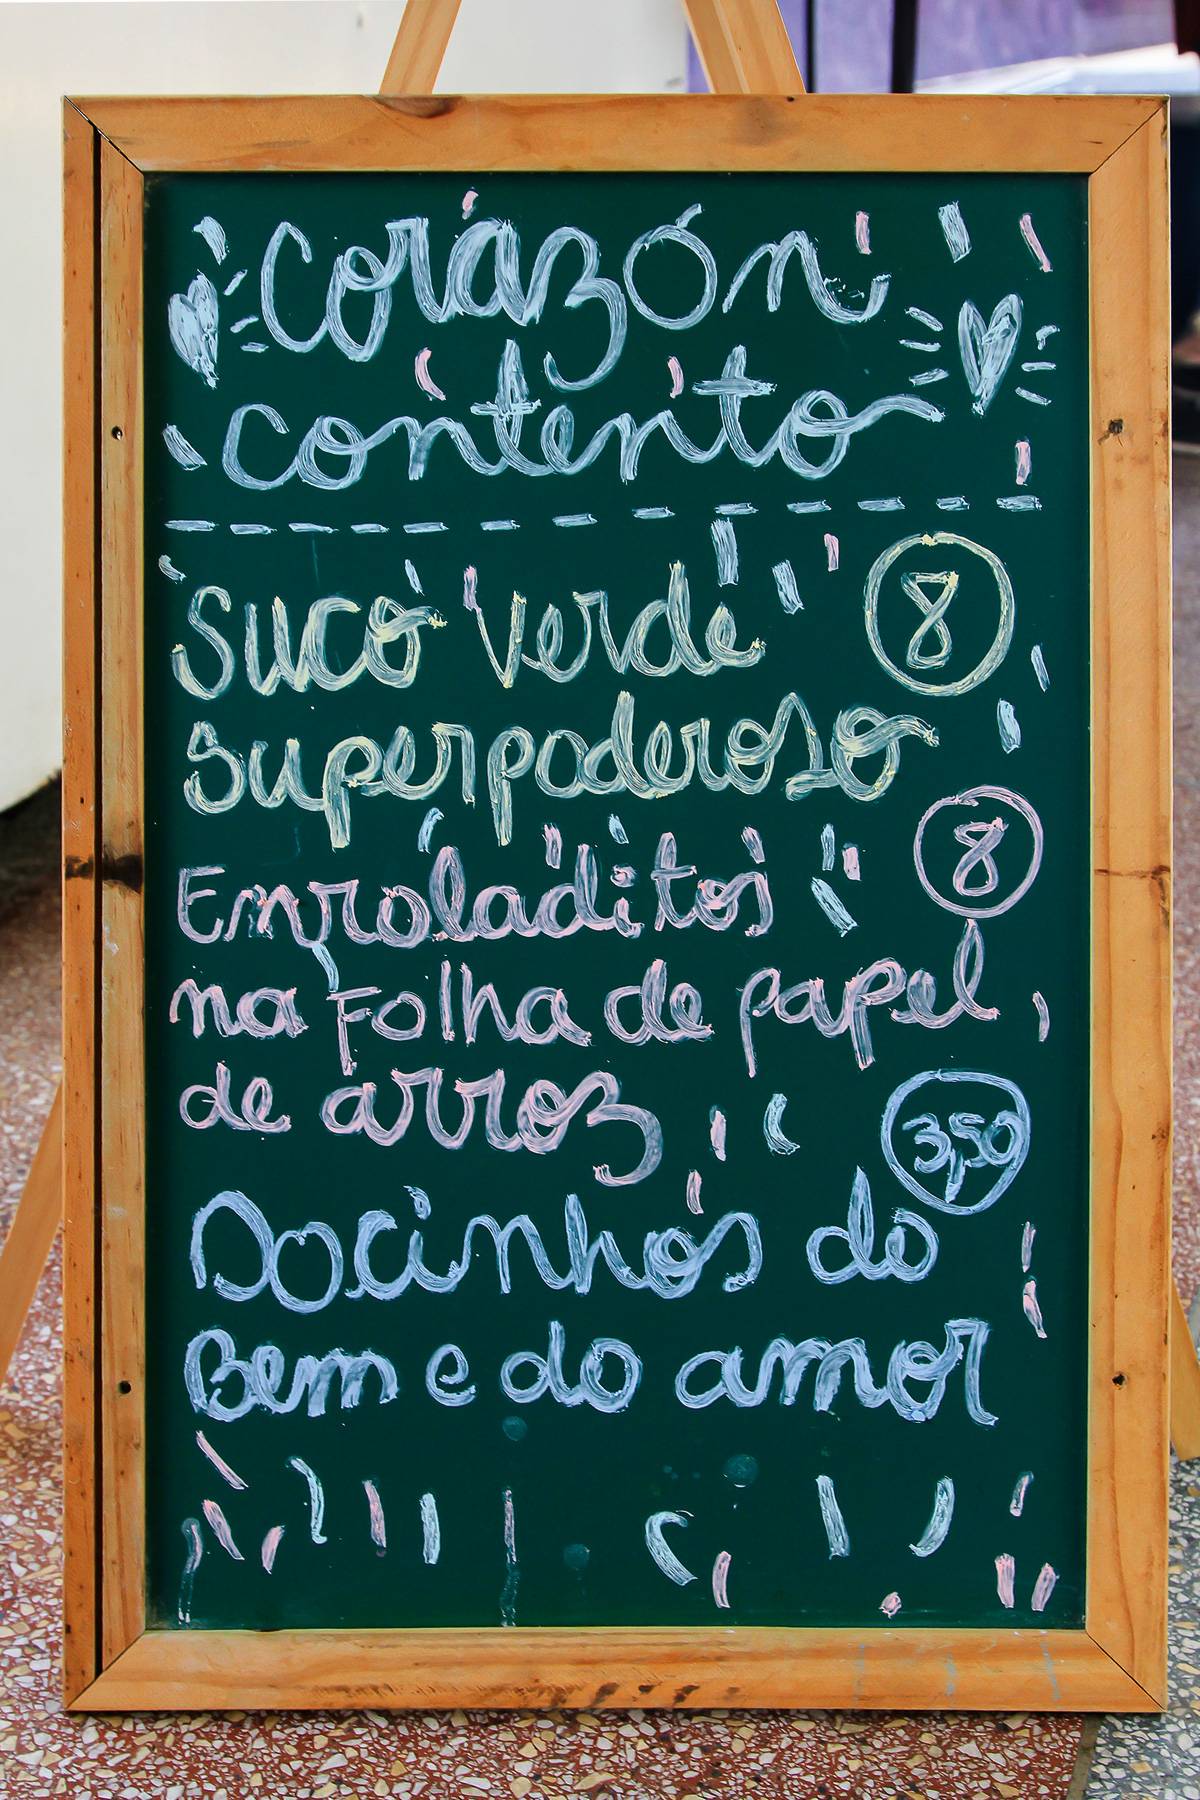 Corazón
contento
Suco Verde 8
Superpoderoso
Enroladitos 8
na Folha de papel
de arroz
3,50
Docinhos do
Bem e do amor